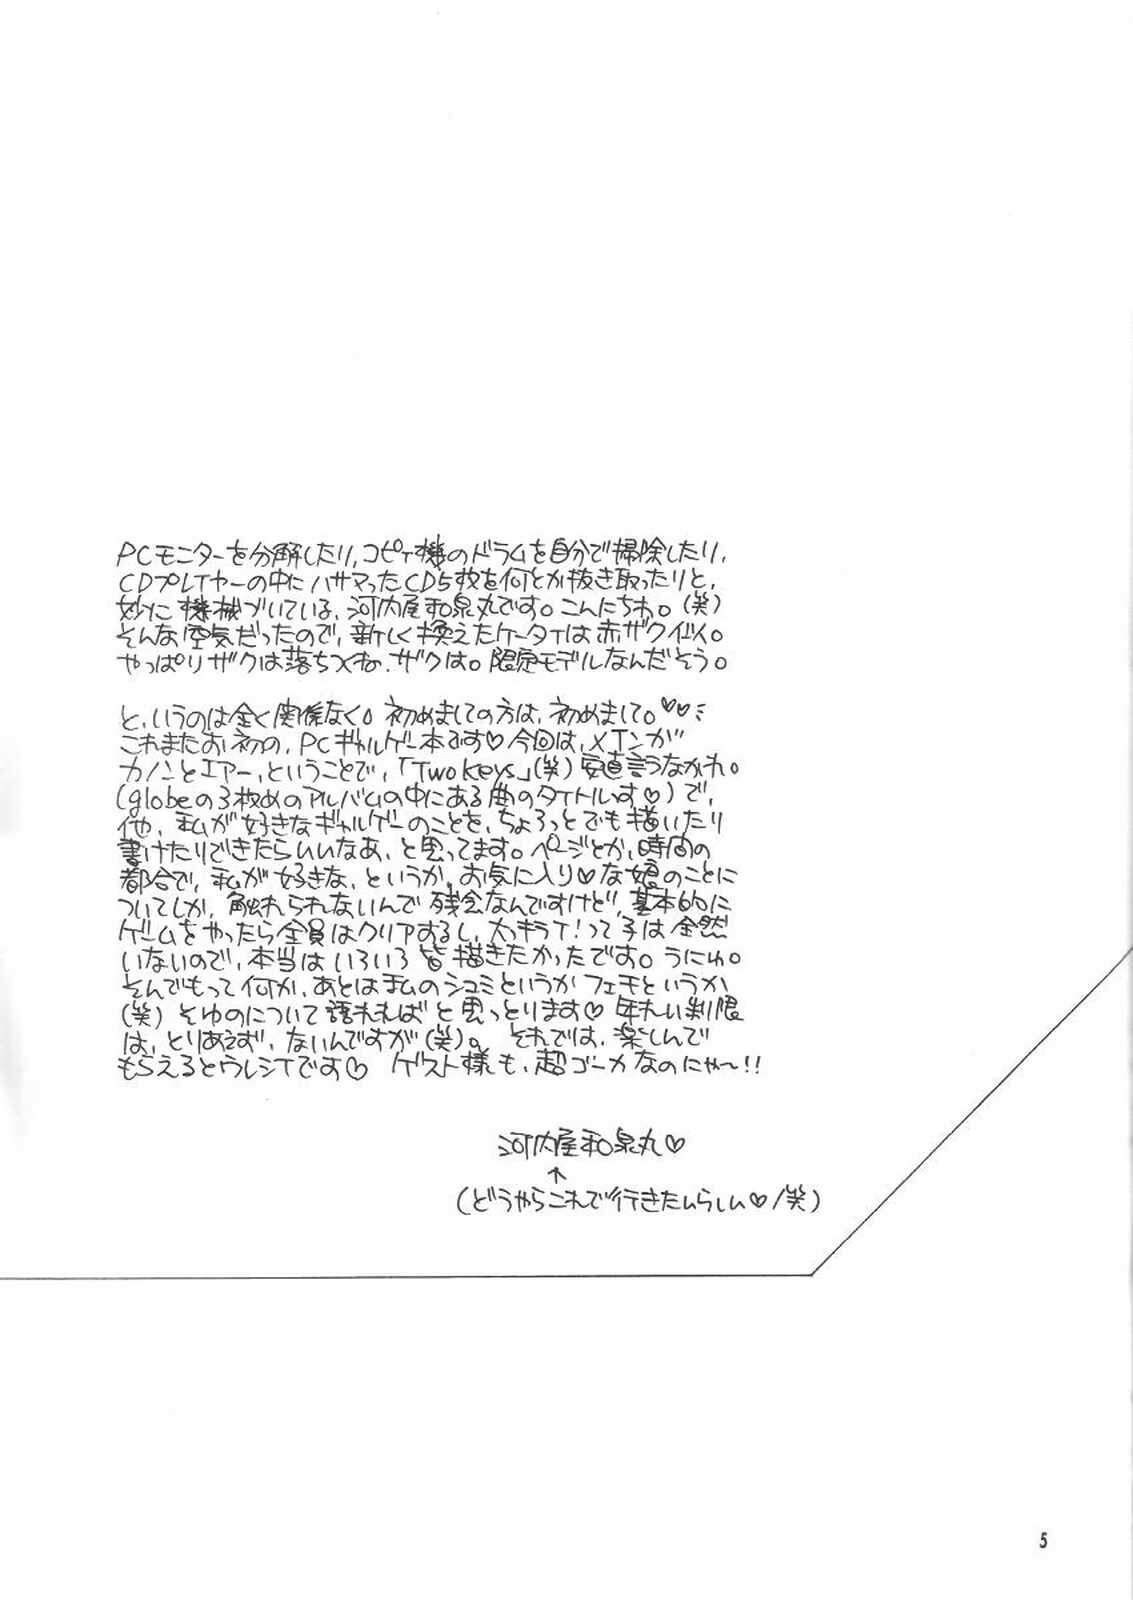 PCモニターを分解したり、コピー機のドラムを自分で掃除したり、
CDプレイヤーの中にハサマったCD5枚を何とか抜き取ったりと、
妙に機械づいている、河内屋和泉丸です。こんにちわ。(笑)
そんな空気だったので、新しく換えたケータイは赤ザク仕様。
やっぱりザクは落ちつくね、ザクは。限定モデルなんだそう。
と、いうのは全く関係なく。初めましての方は、初めまして。♡♡
これまたお初の、PCギャルゲー本です♡今回は、メインが
カノンとエアー、ということで、「Two Keys」(笑)安直言うなかれ。
(globeの3枚めのアルバムの中にある曲のタイトルっす♡)で、
他、私が好きなギャルゲーのことを、ちょろっとでも描いたり
書けたりできたらいいなあ、と思ってます。ページとか、時間の
都合で、私が好きな、というか、お気に入り♡な娘のことに
ついてしか、触れられないんで残念なんですけど、基本的に
ゲームをやったら全員はクリアするし、大ッキライ!って子は全然
いないので、本当はいろいろ皆描きたかったです。うにゅ。
そんでもって何か、あとは私のシュミというかフェチというか
(笑)そゆのについて語れればと思っとります♡年れい制限
は、とりあえず、ないんですが(笑)。それでは、楽しんで
もらえるとウレシイです♡ ゲスト様も、超ゴーカなのにゃ〜!!
河内屋和泉丸♡
↑
(どうやらこれで行きたいらしい♡/笑)
5